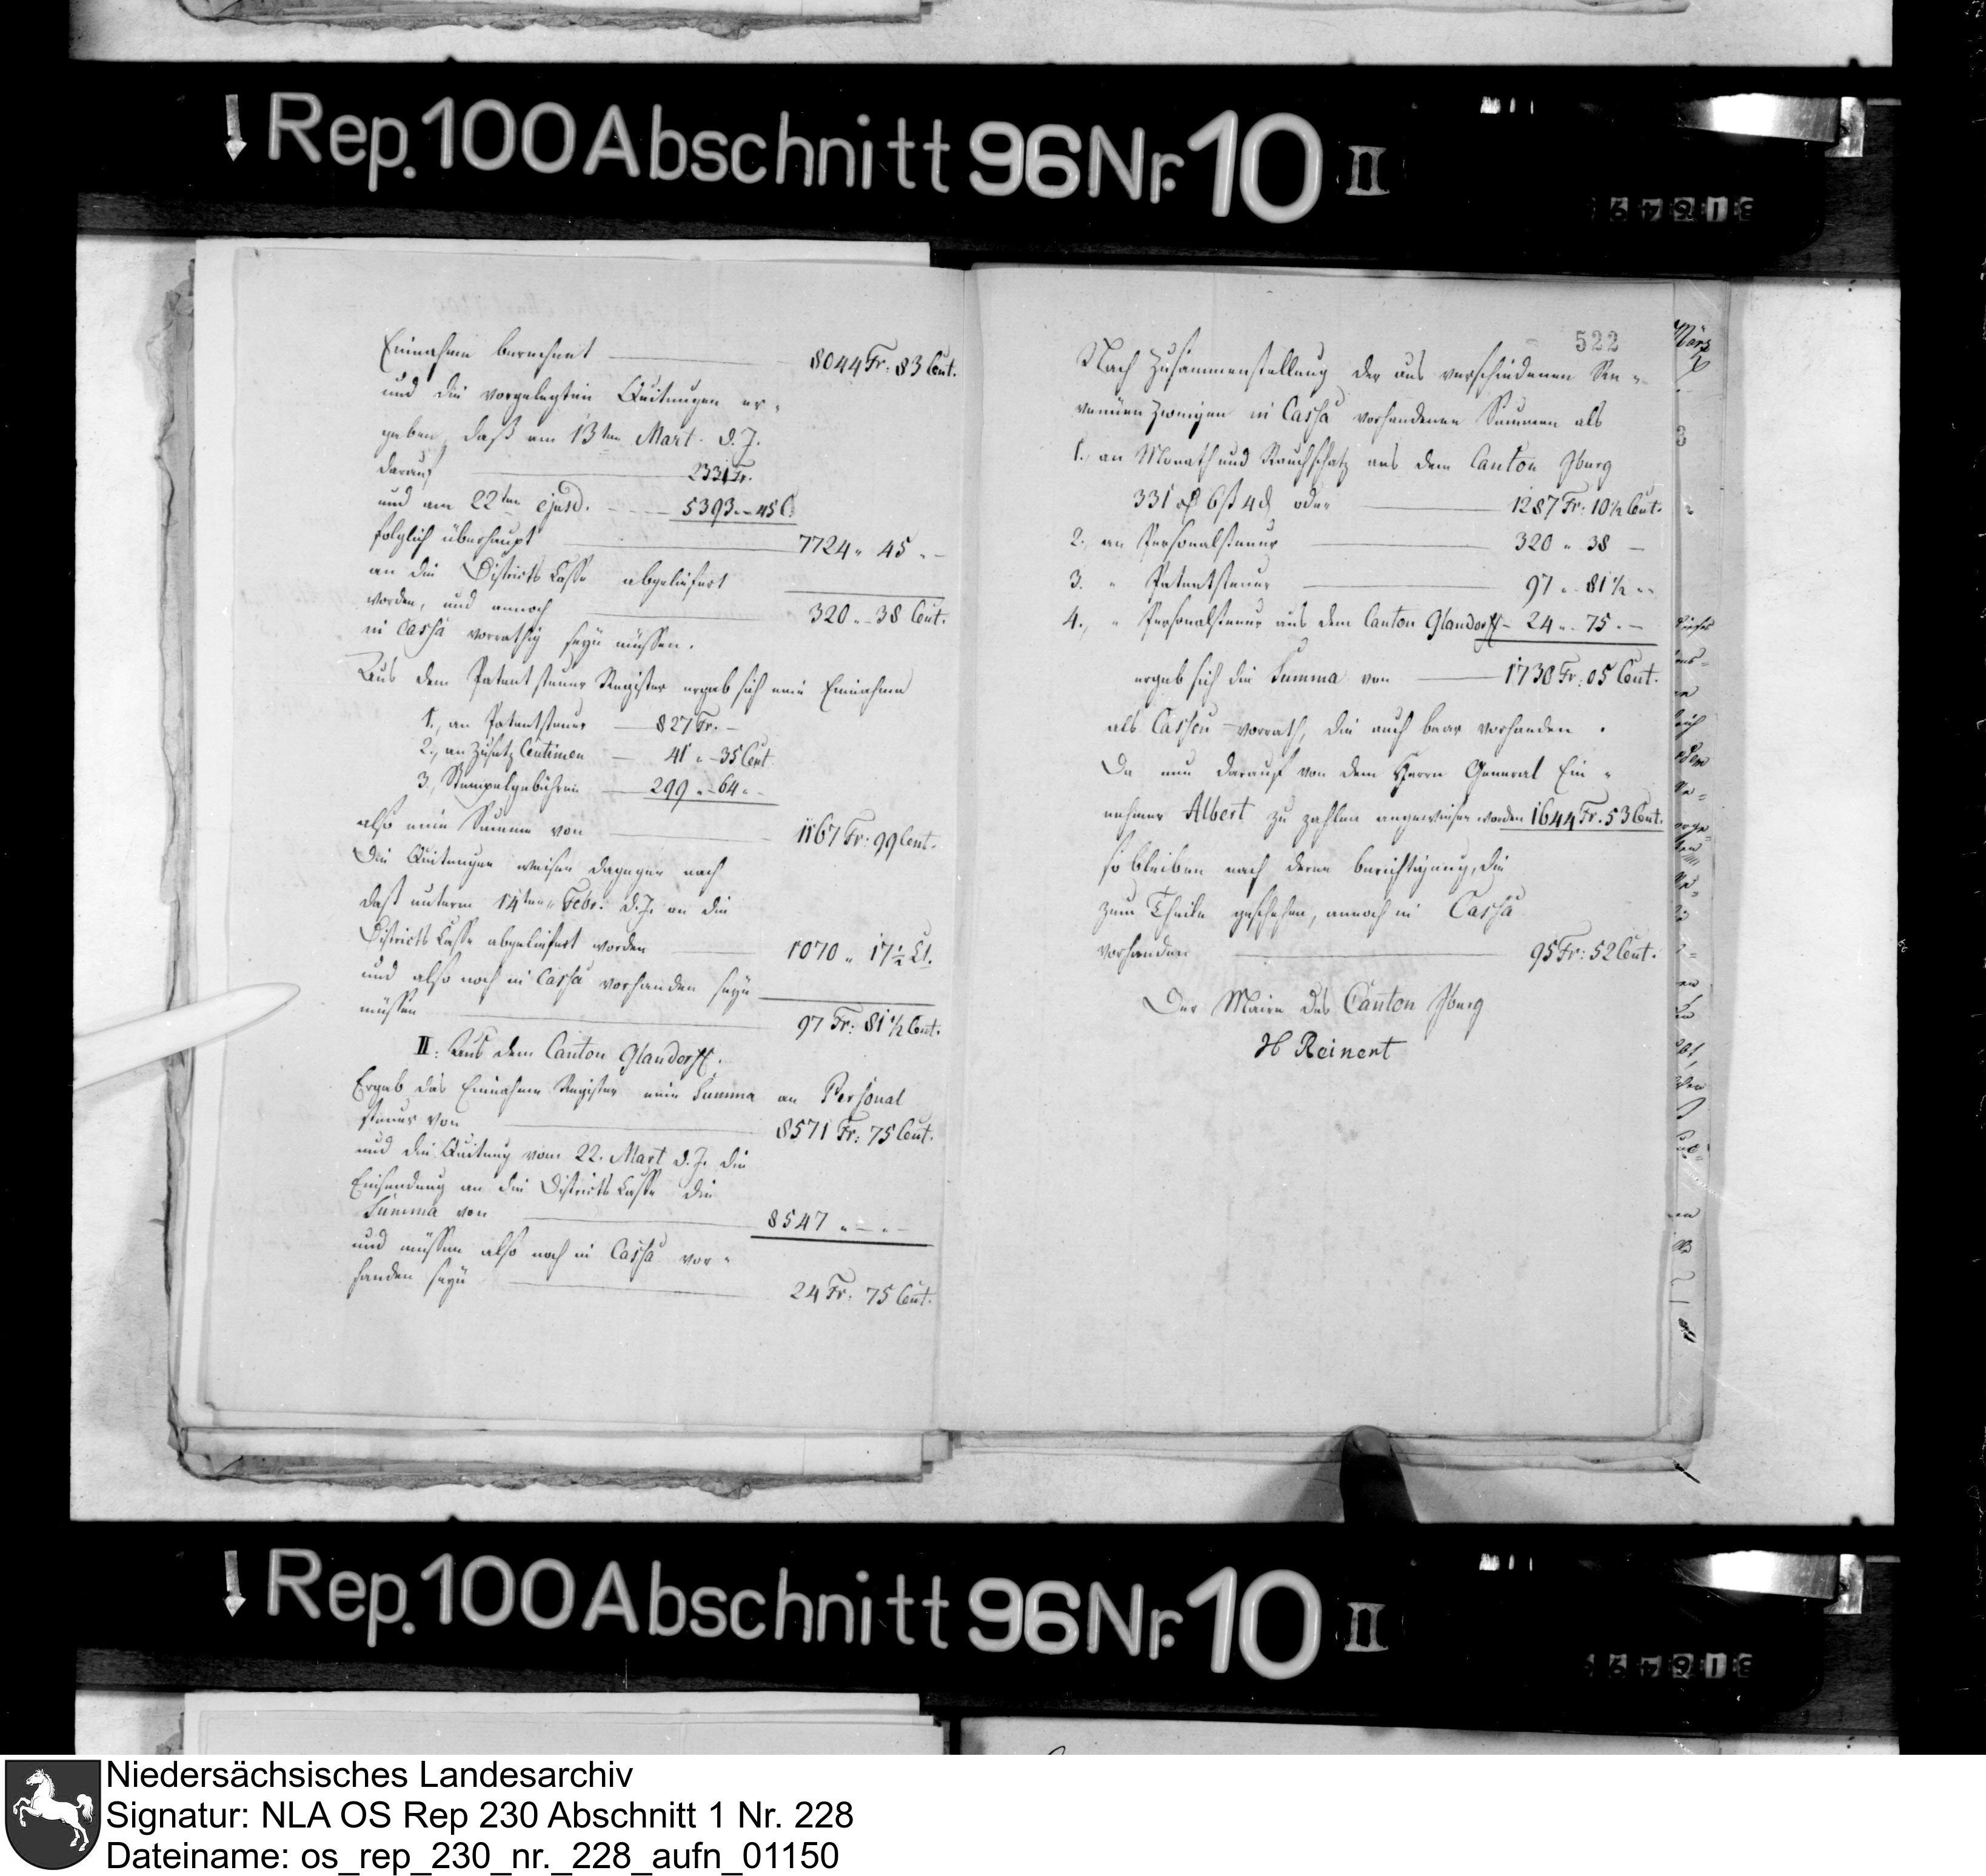 ↓ Rep. 100 Abschnitt 96 Nr. 10 II
Einnahme berechnet — 8044 Fr: 83 Cent.
und die vorgelegten Quitungen er-
geben, daß am 13ten Mart. d. J.
darauf — 2331 Fr.
und am 22ten ejusd. — 5393 „ 45 C.
folglich überhaupt — 7724 „ 45 „ –
an die Districts Casse abgeliefert
worden, und annoch — 320 „ 38 Cent.
in Cassa vorräthig seyn müssen.
Aus dem Patentsteuer Register ergab sich eine Einnahme
1., an Patentsteuer — 827 Fr. –
2., an Zusatz Centimen — 41 „ 35 Cent
3., Stempelgebühren — 299 „ 64 „ –
also eine Summe von — 1167 Fr: 99 Cent.
Die Quitungen weisen dagegen nach
daß unterm 14ten Febr. d. J. an die
Districts Casse abgeliefert worden — 1070 „ 17 ½ Ct.
und also noch in Cassa vorhanden seyn
müssen — 97 Fr: 81 ½ Cent.
II. Aus dem Canton Glandorff.
Ergab das Einnahme Register eine Summa an Personal
steuer von — 8571 Fr: 75 Cent.
und die Quitung vom 22. Mart d. J. die
Einsendung an die Districts Casse die
Summa von — 8547 „ – „ –
und müssen also noch in Cassa vor-
handen seyn — 24 Fr: 75 Cent.
522
Nach Zusammenstellung der aus verschiedenen Re-
venüen Zweigen in Cassa vorhandenen Summen als
1., an Monath und Rauchschatz aus dem Canton Jburg
331 rt 6 ß 4 d oder — 1287 Fr: 10 ½ Cent.
2., an Personalsteuer — 320 „ 38 –
3. „ Patentsteuer — 97 „ 81 ½ „
4., „ Personalsteuer aus dem Canton Glandorff – 24 „ 75 „ –
ergab sich die Summa von — 1730 Fr: 05 Cent.
als Cassen-vorrath, die auch baar vorhanden.
Da nun darauf von dem Herrn General Ein-
nehmer Albert zu zahlen angewiesen worden 1644 Fr. 53 Cent.
so bleiben nach deren berichtigung, die
zum Theile geschehen, annoch in Cassa
vorhanden — 95 Fr: 52 Cent.
Der Maire des Canton Jburg
H Reinert
↓ Rep. 100 Abschnitt 96 Nr. 10 II
Niedersächsisches Landesarchiv
Signatur: NLA OS Rep 230 Abschnitt 1 Nr. 228
Dateiname: os_rep_230_nr._228_aufn_01150